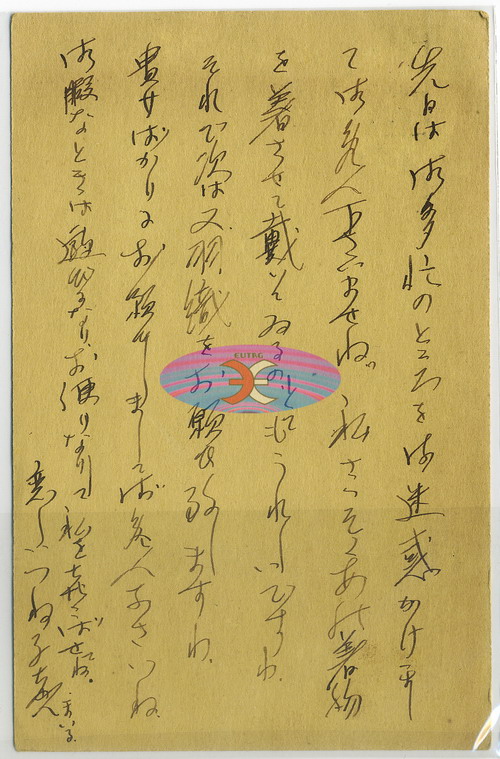 先日は御多忙のところを御迷惑かけまし
て御免下さいませね 私さっそくあの着物
を着させて戴いてゐるのとてもうれしいですわ
それで次は又羽織をお願ひ致しますわ
貴女ばかりにお願ひしましてご免なさいね
御暇なときは遊びなりお便りなりして私を喜ばせてね
EUTAG